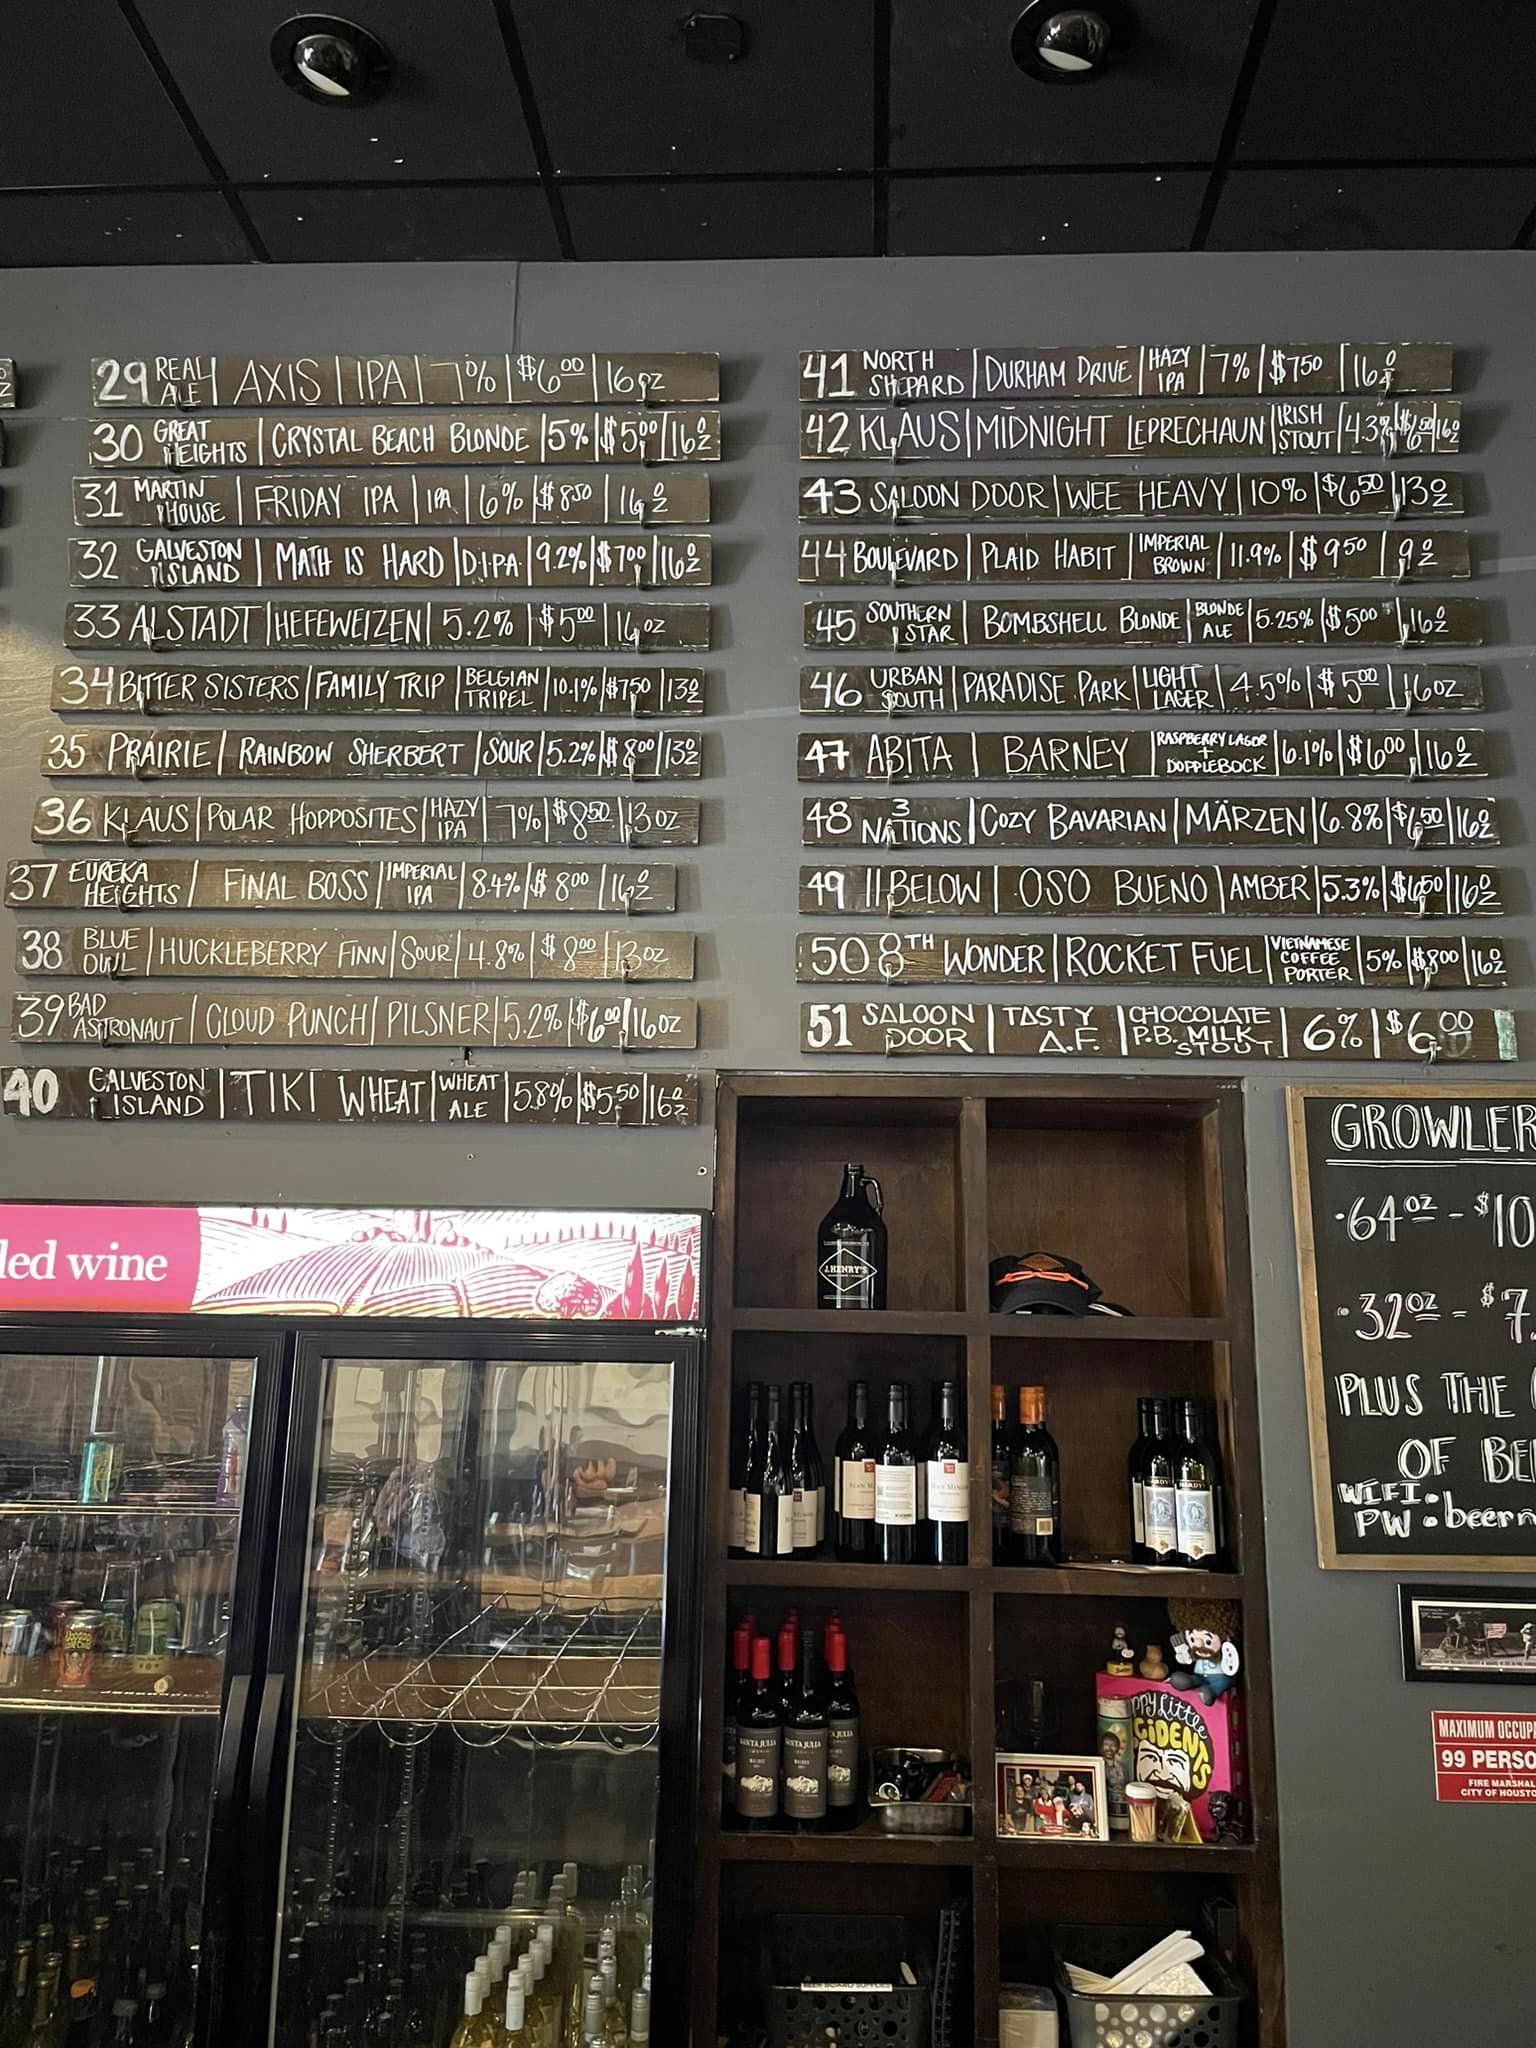 29 REAL ALE | AXIS | IPA | 7% | $6.00 | 16 OZ
30 GREAT HEIGHTS | CRYSTAL BEACH BLONDE | 5% | $5.00 | 16 OZ
31 MARTIN HOUSE | FRIDAY IPA | IPA | 6% | $8.50 | 16 OZ
32 GALVESTON ISLAND | MATH IS HARD | D.I.P.A. | 9.2% | $7.00 | 16 OZ
33 ALSTADT | HEFEWEIZEN | 5.2% | $5.00 | 16 OZ
34 BITTER SISTERS | FAMILY TRIP | BELGIAN TRIPEL | 10.1% | $7.50 | 13 OZ
35 PRAIRIE | RAINBOW SHERBERT | SOUR | 5.2% | $8.00 | 13 OZ
36 KLAUS | POLAR HOPPOSITES | HAZY IPA | 7% | $8.50 | 13 OZ
37 EUREKA HEIGHTS | FINAL BOSS | IMPERIAL IPA | 8.4% | $8.00 | 16 OZ
38 BLUE OWL | HUCKLEBERRY FINN | SOUR | 4.8% | $8.00 | 13 OZ
39 BAD ASTRONAUT | CLOUD PUNCH | PILSNER | 5.2% | $6.00 | 16 OZ
40 GALVESTON ISLAND | TIKI WHEAT | WHEAT ALE | 5.8% | $5.50 | 16 OZ
41 NORTH SHEPARD | DURHAM DRIVE | HAZY IPA | 7% | $7.50 | 16 OZ
42 KLAUS | MIDNIGHT LEPRECHAUN | IRISH STOUT | 4.3% | $6.50 | 16 OZ
43 SALOON DOOR | WEE HEAVY | 10% | $6.50 | 13 OZ
44 BOULEVARD | PLAID HABIT | IMPERIAL BROWN | 11.9% | $9.50 | 9 OZ
45 SOUTHERN STAR | BOMBSHELL BLONDE | BLONDE ALE | 5.25% | $5.00 | 16 OZ
46 URBAN SOUTH | PARADISE PARK | LIGHT LAGER | 4.5% | $5.00 | 16 OZ
47 ABITA | BARNEY | RASPBERRY LAGOR + DOPPLEBOCK | 6.1% | $6.00 | 16 OZ
48 3 NATIONS | COZY BAVARIAN | MÄRZEN | 6.8% | $6.50 | 16 OZ
49 11 BELOW | OSO BUENO | AMBER | 5.3% | $6.50 | 16 OZ
50 8TH WONDER | ROCKET FUEL | VIETNAMESE COFFEE PORTER | 5% | $8.00 | 16 OZ
51 SALOON DOOR | TASTY A.F. | CHOCOLATE P.B. MILK STOUT | 6% | $6.00
led wine
J. HENRY'S
GROWLER
·64 OZ - $10
·32 OZ - $7.
PLUS THE
OF BE
WIFI:
PW: beer
SANTA JULIA
MALBEC
SANTA JULIA
MALBEC
HARDYS
MAXIMUM OCCUP
99 PERSO
FIRE MARSHAL
CITY OF HOUSTO
BEER BOARD SUPPLIES